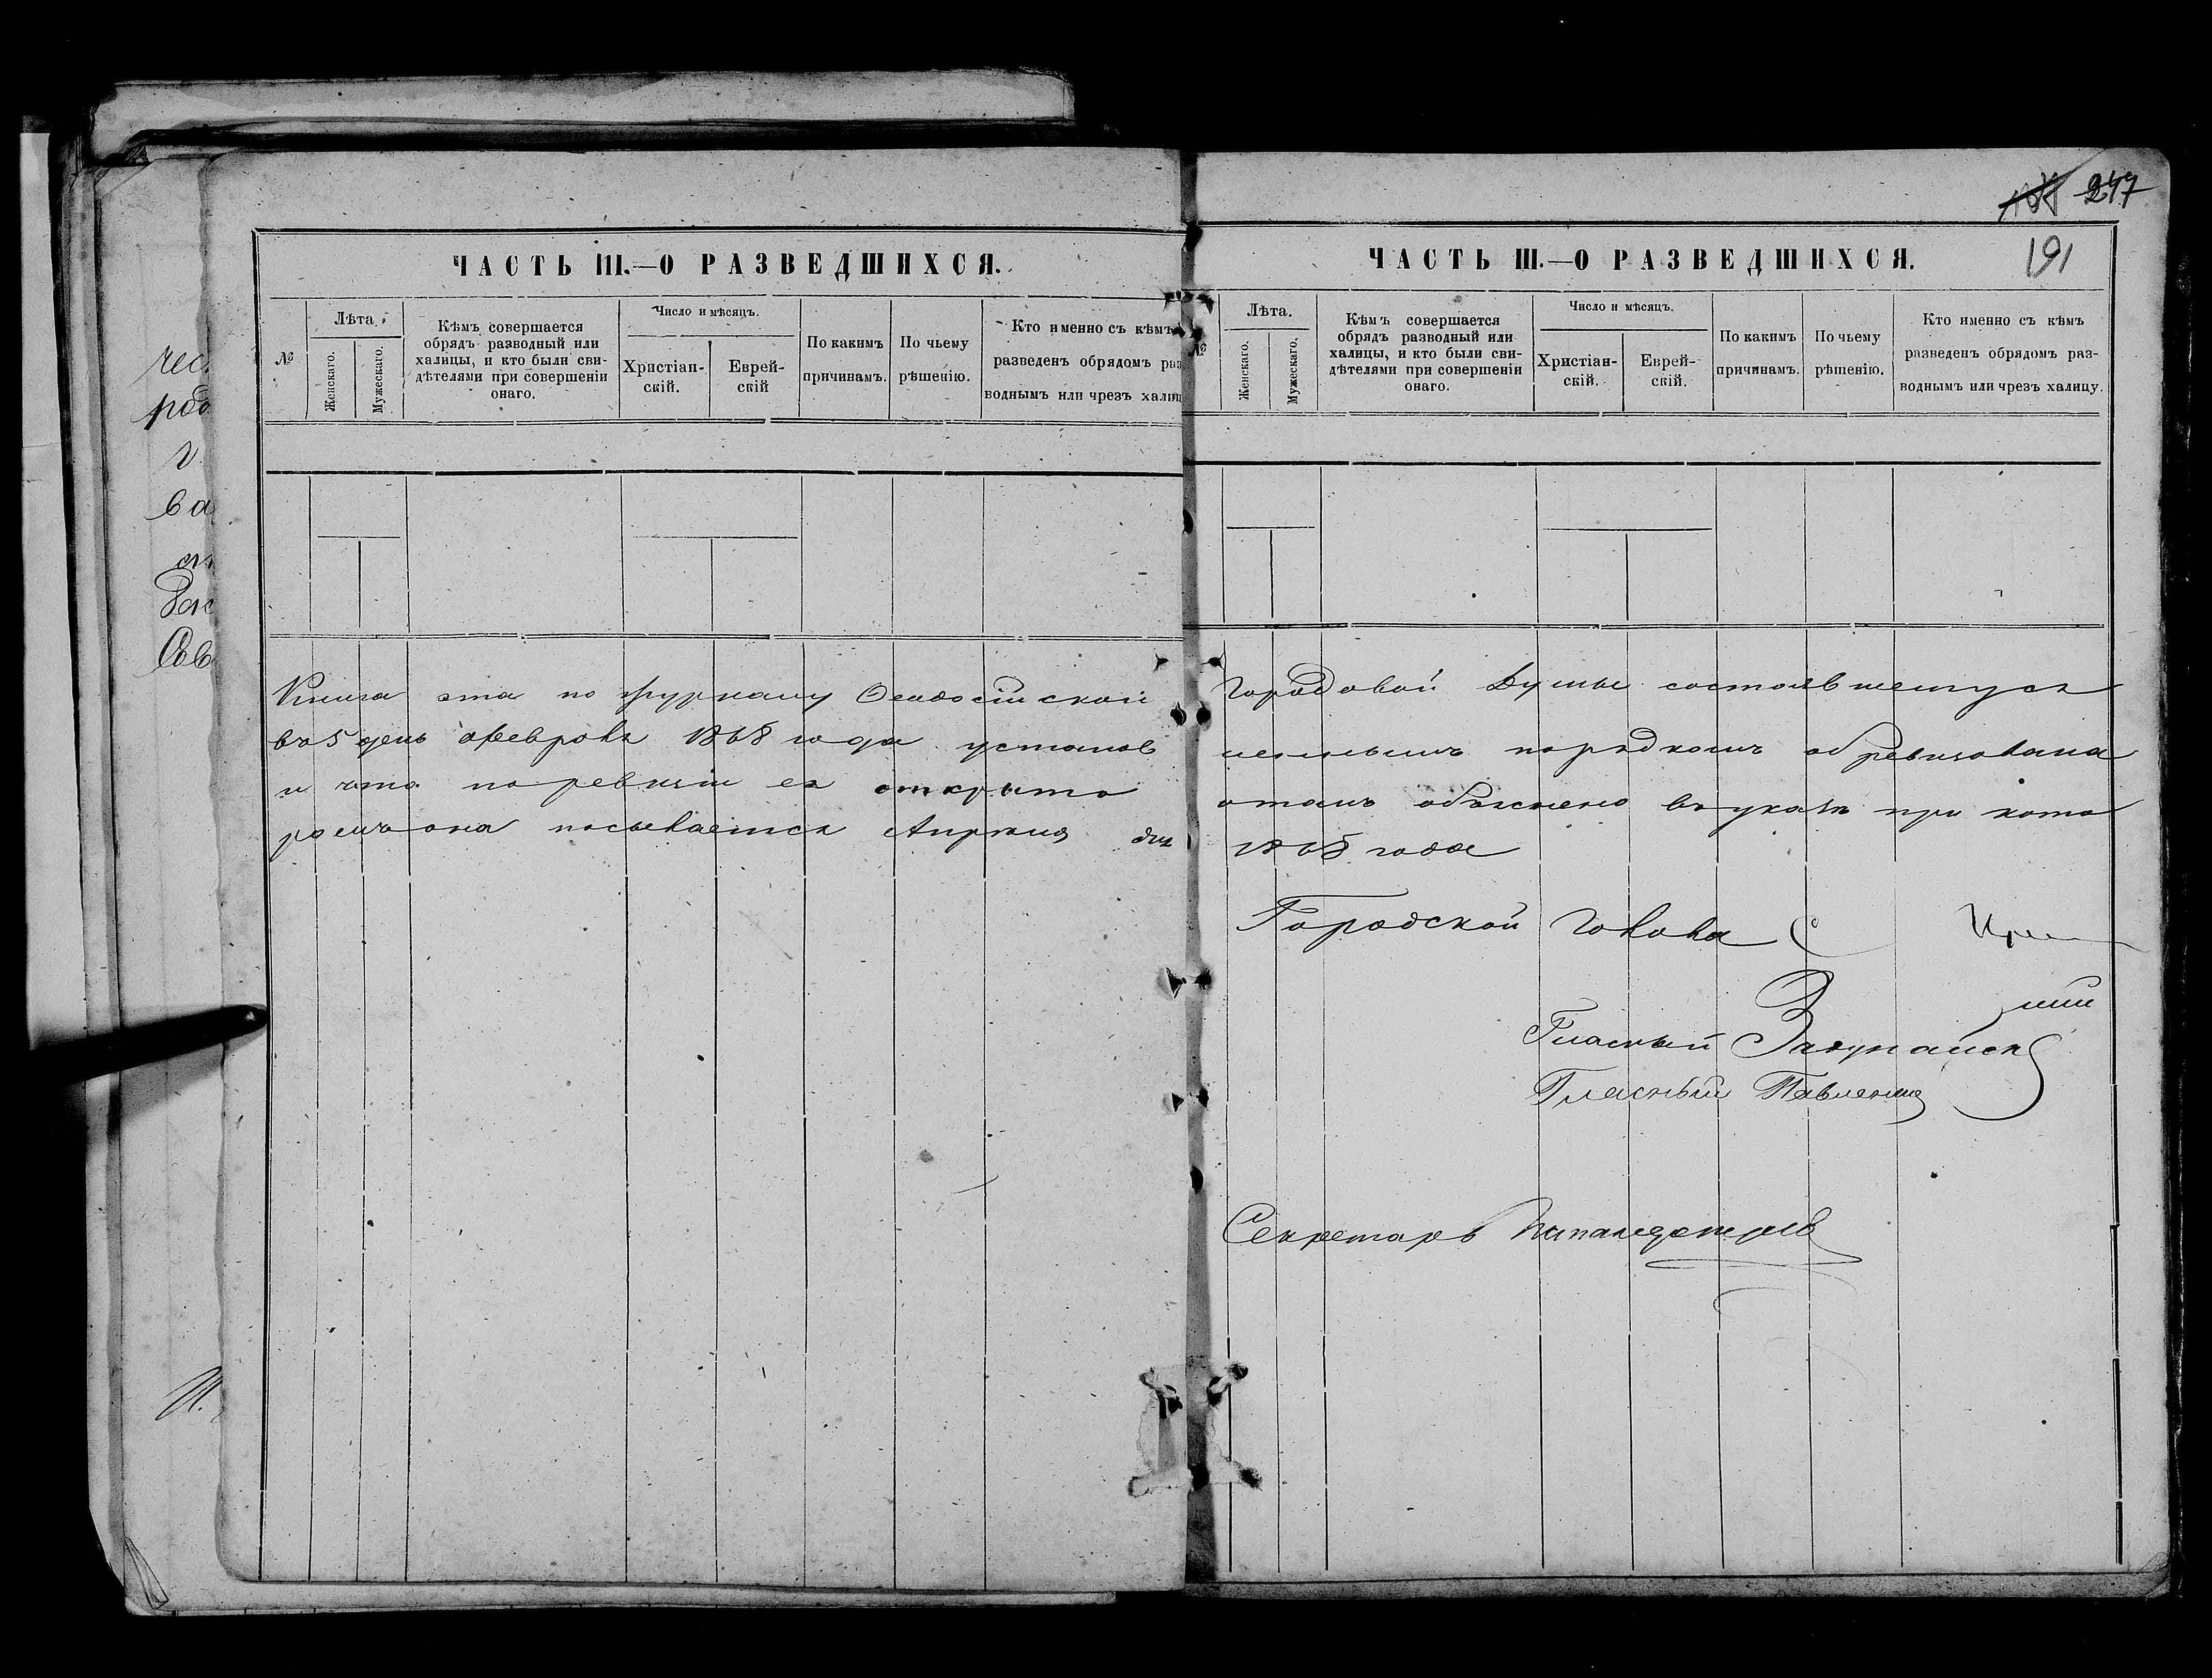 247
191
ЧАСТЬ III.—О РАЗВЕДШИХСЯ.
№
Лѣта.
Женскаго.
Мужескаго.
Кѣмъ совершается
обрядъ разводный или
халицы, и кто были сви-
дѣтелями при совершеніи
онаго.
Число и мѣсяцъ.
Христіан-
скій.
Еврей-
скій
По какимъ
причинамъ.
По чьему
рѣшенію.
Кто именно съ кѣмъ
разведенъ обрядомъ раз
воднымъ или чрезъ халиц
ЧАСТЬ III.—О РАЗВЕДШИХСЯ.
№
Лѣта.
Женскаго.
Мужескаго.
Кѣмъ совершается
обрядъ разводный или
халицы, и кто были сви-
дѣтелями при совершеніи
онаго.
Число и мѣсяцъ.
Христіан-
скій.
Еврей-
скій.
По какимъ
причинамъ.
По чьему
рѣшенію.
Кто именно съ кѣмъ
разведенъ обрядомъ раз-
воднымъ или чрезъ халицу.
Книга эта по журналу Ѳеодосійской Городовой Думы состоявшемуся
въ 5 день февраля 1868 года установ леннымъ порядкомъ обревизована
и что по ревизіи ея открыто о томъ объяснено въ указѣ при кото
ромъ она посылается Апрѣля дня 1868 года
Городской Голова
Гласный
Гласный Павленко
Секретарь